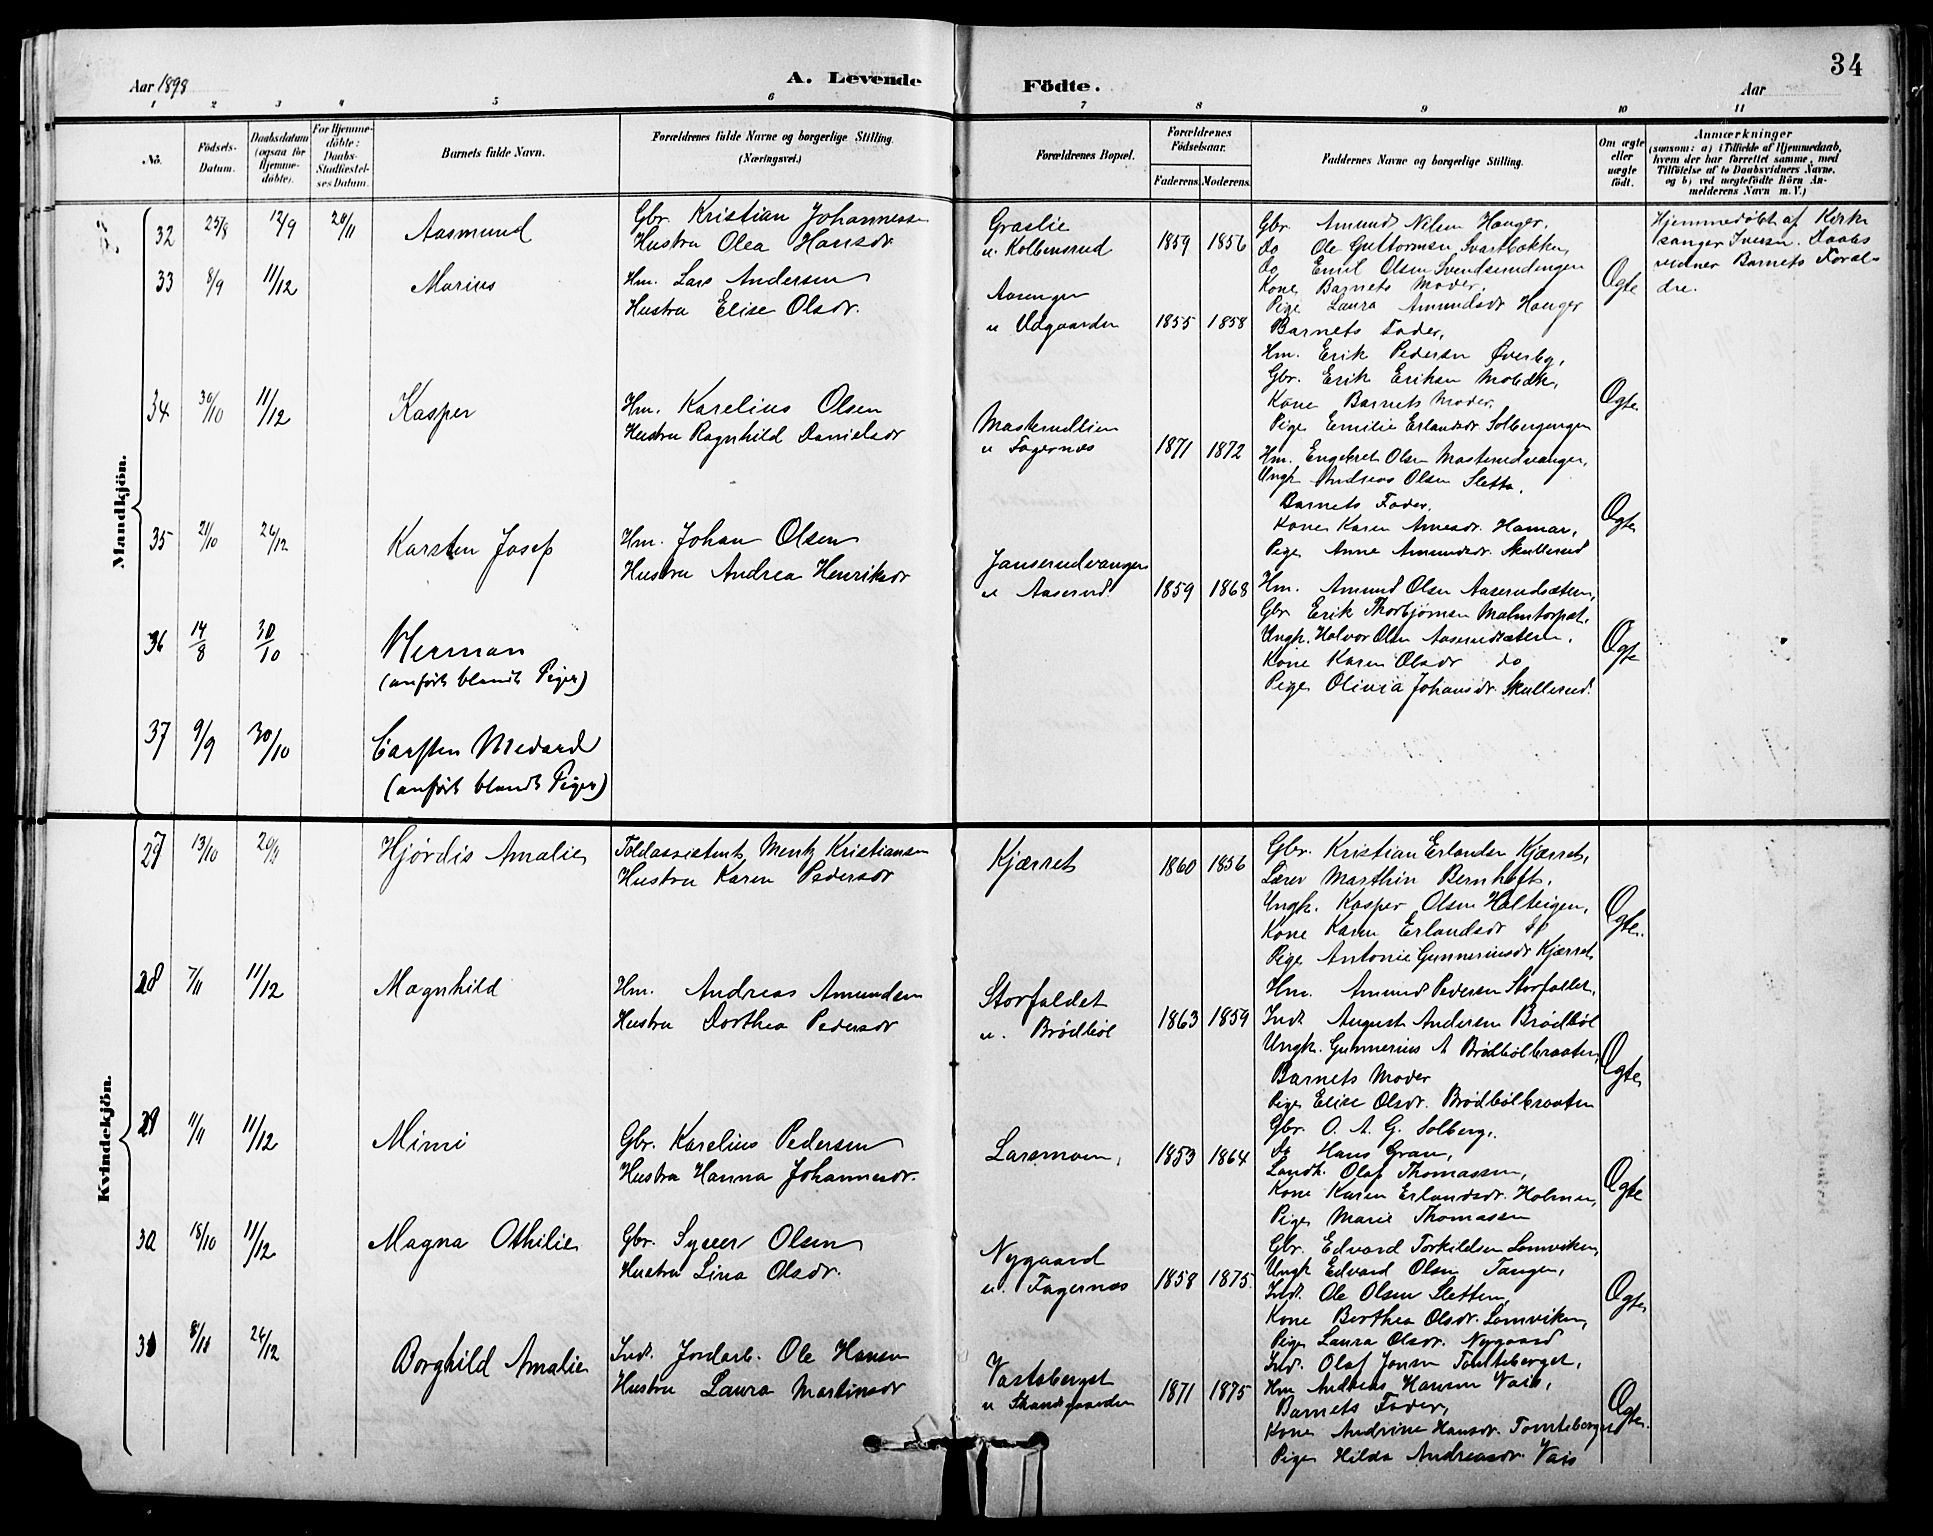 34
Aar 1898
A. Levende Födte.
Aar
1 2 3 4 5 6 7 8 9 10 11
No.
Födsels-Datum.
Daabsdatum (ogsaa for Hjemme-döbte).
For Hjemme-döbte: Daabs-Stadfæstel-ses Datum.
Barnets fulde Navn.
Forældrenes fulde Navne og borgerlige Stilling. (Næringsvei.)
Forældrenes Bopæl.
Forældrenes Födselsaar.
Faderens Moderens
Faddernes Navne og borgerlige Stilling.
Om ægte eller uægte födt.
Anmærkninger
(saasom: a) i Tilfælde af Hjemmedaab, hvem der har forrettet samme, med Tilföielse af to Daabsvidners Navne, og b) ved uægtefödte Börn An-melderens Navn m. V.)
Mandkjön.
32 25/8 12/9 20/11 Aasmund
Gbr. Kristian Johannessen
Hustru Olea Hansdr.
Graslie
u. Kolbensrud
1859 1856
Gbr. Amund Nilsen Hanger.
Do Ole Guttormsen Svartbækken,
Do Emil Olsen Svendsrudengen
Kone Barnets Moder,
Pige Laura Amundsdr Hanger
Ægte
Hjemmedøbt af Kirke
sanger Iversen. Daabs
vidner Barnets Foræl-
dre.
33 8/9 11/12 Marius
Hm. Lars Andersen
Hustru Elise Olsdr.
Aasengen
u Udgaarden
1855 1858
Barnets Fader,
Hm. Erik Pedersen Øverby,
Gbr. Erik Eriksen Mobæk,
Kone Barnets Moder,
Pige Emilie Erlandsdr Solbergengen
Ægte
34 30/10 11/12 Kasper
Hm. Karelius Olsen
Hustru Ragnhild Danielsdr
Masterudlien
u Fagernæs
1871 1872
Hm. Engebret Olsen Masterudvangen,
Ungk. Andreas Olsen Sletta.
Barnets Fader,
Kone Karen Arnesdr. Hamar,
Pige Anne Amundsdr. Skullerud
Ægte
35 21/10 26/12 Karsten Josef
Hm. Johan Olsen
Hustru Andrea Henriksdr
Janserudvangen
u Aaserud
1859 1868
Hm. Amund Olsen Aaserudsæteren,
Gbr Erik Thorbjørnsen Malmtorpet.
Ungk. Halvor Olsen Aaserudsæteren.
Kone Karen Olsdr do
Pige Olivia Johansdr. Skullerud.
Ægte
36 14/8 30/10 Herman
(anført blandt Piger)
37 9/9 30/10 Carsten Medard
(anført blandt Piger)
Kvindekjön.
27 13/10 20/9 Hjørdis Amalie
Toldassistent Mentz Kristiansen
Hustru Karen Pedersdr
Kjærret
1860 1856
Gbr. Kristian Erlandsen Kjærret,
Lærer Marthin Bernhoft,
Ungk. Kasper Olsen Halteigen,
Kone Karen Erlandsdr
Pige Antonie Gunneriusdr Kjærret
Ægte.
28 7/11 11/12 Magnhild
Hm. Andreas Amundsen
Hustru Dorthea Pedersdr
Storfaldet
u. Brødbøl
1863 1859
Hm. Amund Pedersen Storfaldet,
Indr. August Andersen Brødbøl
Ungk. Gunnerius A Brødbølbraaten,
Barnets Moder
Pige Elise Olsdr. Brødbølbraaten
Ægte
29 11/11 11/12 Mimi
Gbr. Karelius Pedersen
Hustru Hanna Johannesdr.
Larsmoen,
1853 1864
Gbr. O. A. G. Solberg,
Do Hans Gran,
Landh. Olaf Thomassen,
Kone Karen Erlandsdr. Holmen,
Pige Marie Thomassen
Ægte
30 18/10 11/12 Magna Othilie
Gbr. Syver Olsen
Hustru Lina Olsdr.
Nygaard
u. Fagernæs
1858 1875.
Gbr. Edvard Torkildsen Lomviken,
Ungk Edvard Olsen Tangen,
Indr. Ole Olsen Sletten,
Kone Berthea Olsdr. Lomviken,
Pige Laura Olsdr. Nygaard
Ægte
31 26/12 Borghild Amalie
Indr. Jordarb. Ole Hansen
Hustru Laura Martinsdr
Vastaberget
u Strandgaarden
1871 1875
Indr. Olaf Jonsen Tomteberget,
Hm Andreas Hansen Vais,
Barnets Fader,
Kone Andrine Hansdr. Tomteberget
Pige Hilda Andreasdr. Vais
Ægte.